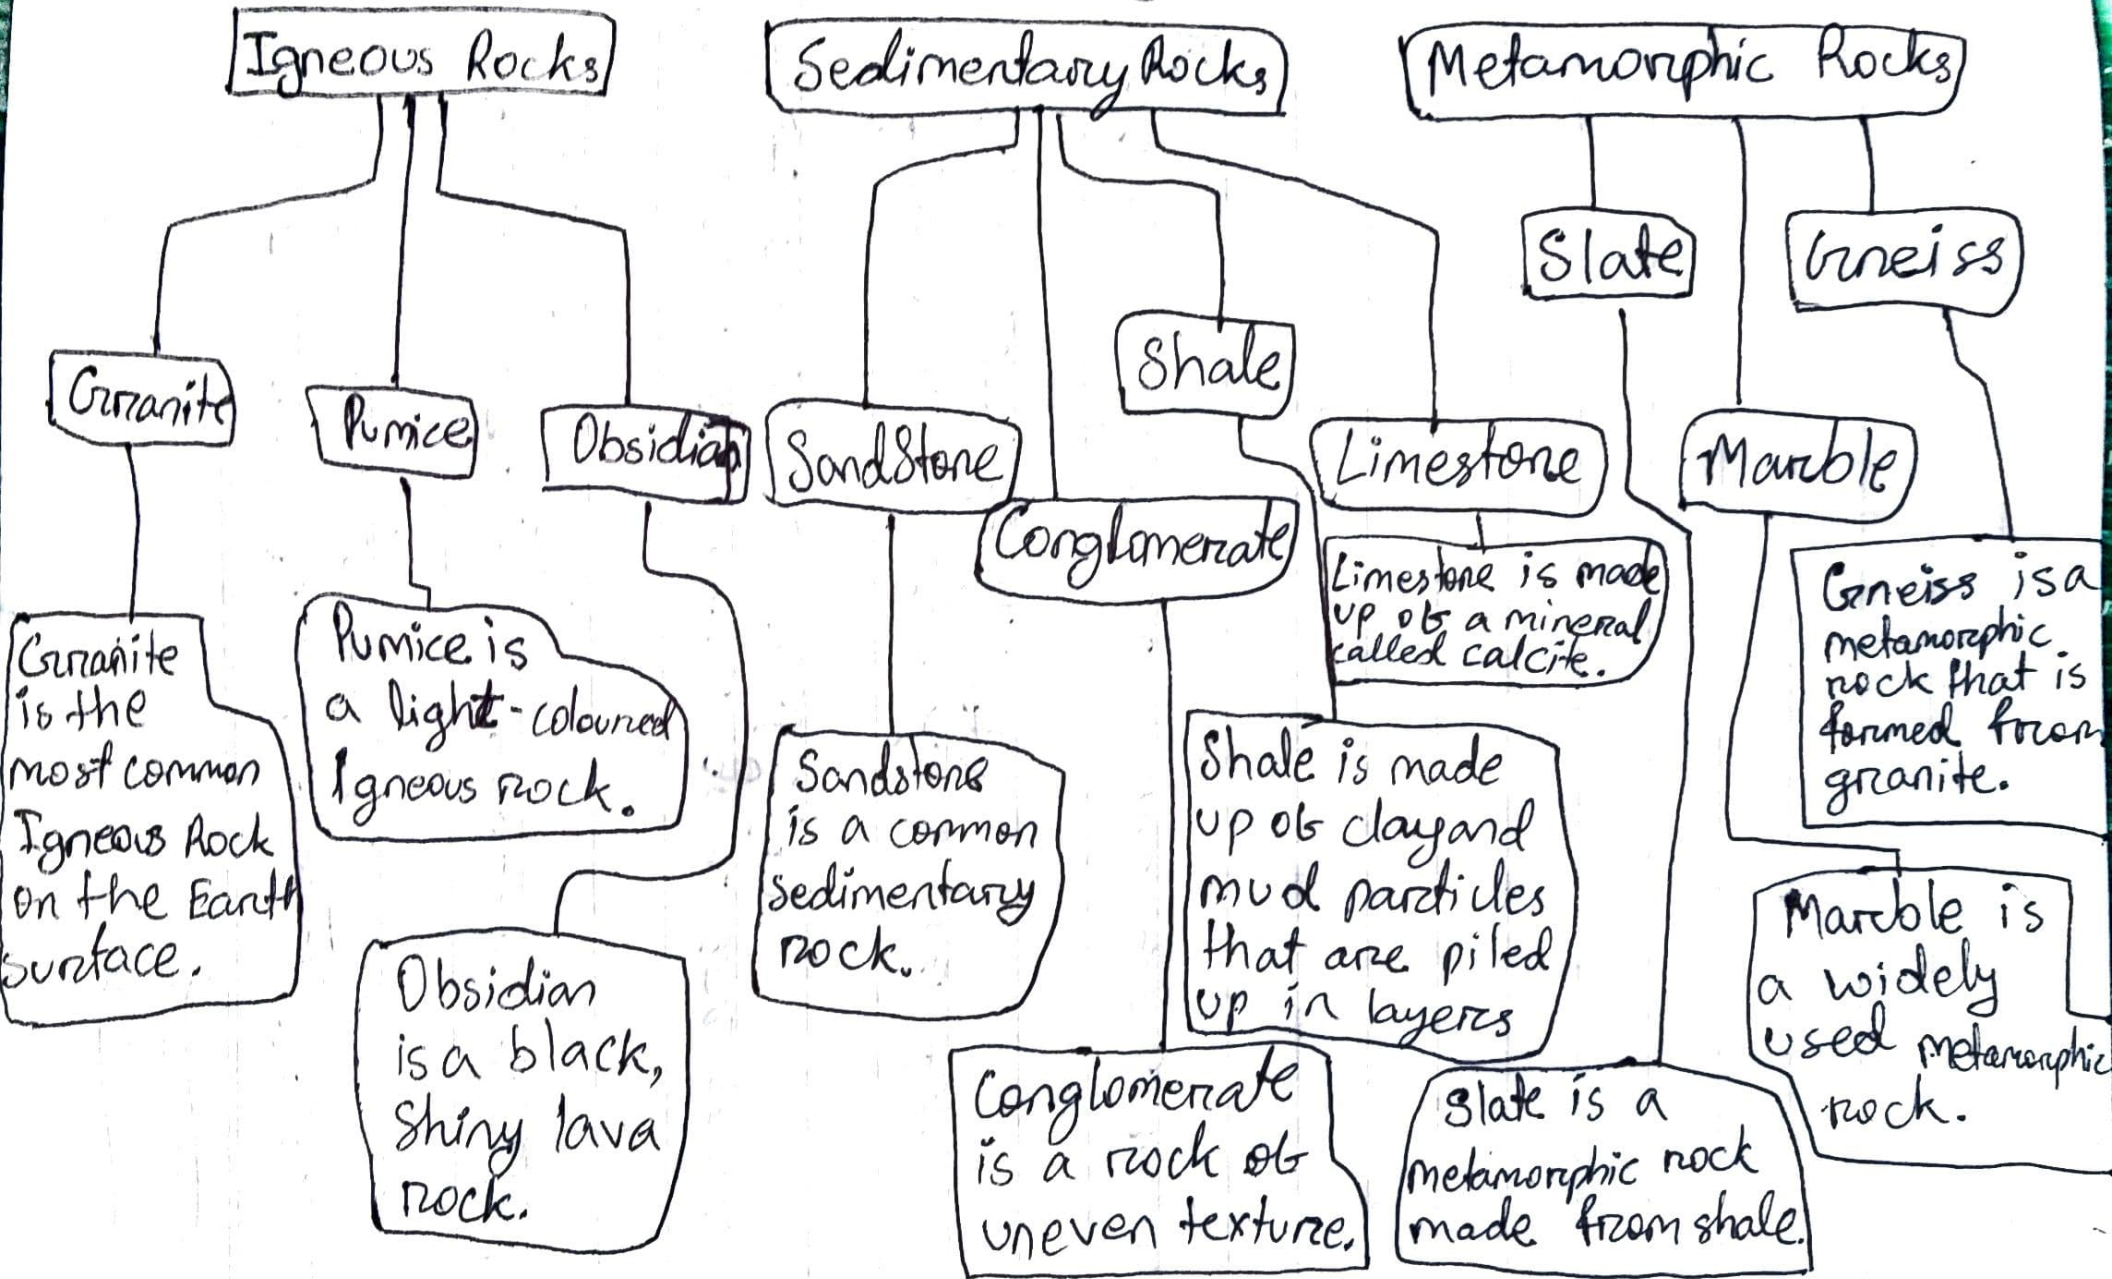 Igneous Rocks
Sedimentary Rocks
Metamorphic Rocks
Granite
Pumice
Obsidian
SandStone
Conglomerate
Shale
Limestone
Slate
Marble
Gneiss
Granite
is the
most common
Igneous Rock
on the Earth
surface.
Pumice is
a light-coloured
Igneous rock.
Obsidian
is a black,
Shiny lava
rock.
Sandstone
is a common
sedimentary
rock.
Conglomerate
is a rock of
uneven texture.
Shale is made
up of clay and
mud particles
that are piled
up in layers
Limestone is made
up of a mineral
called calcite.
Slate is a
metamorphic rock
made from shale.
Marble is
a widely
used metamorphic
rock.
Gneiss is a
metamorphic
rock that is
formed from
granite.